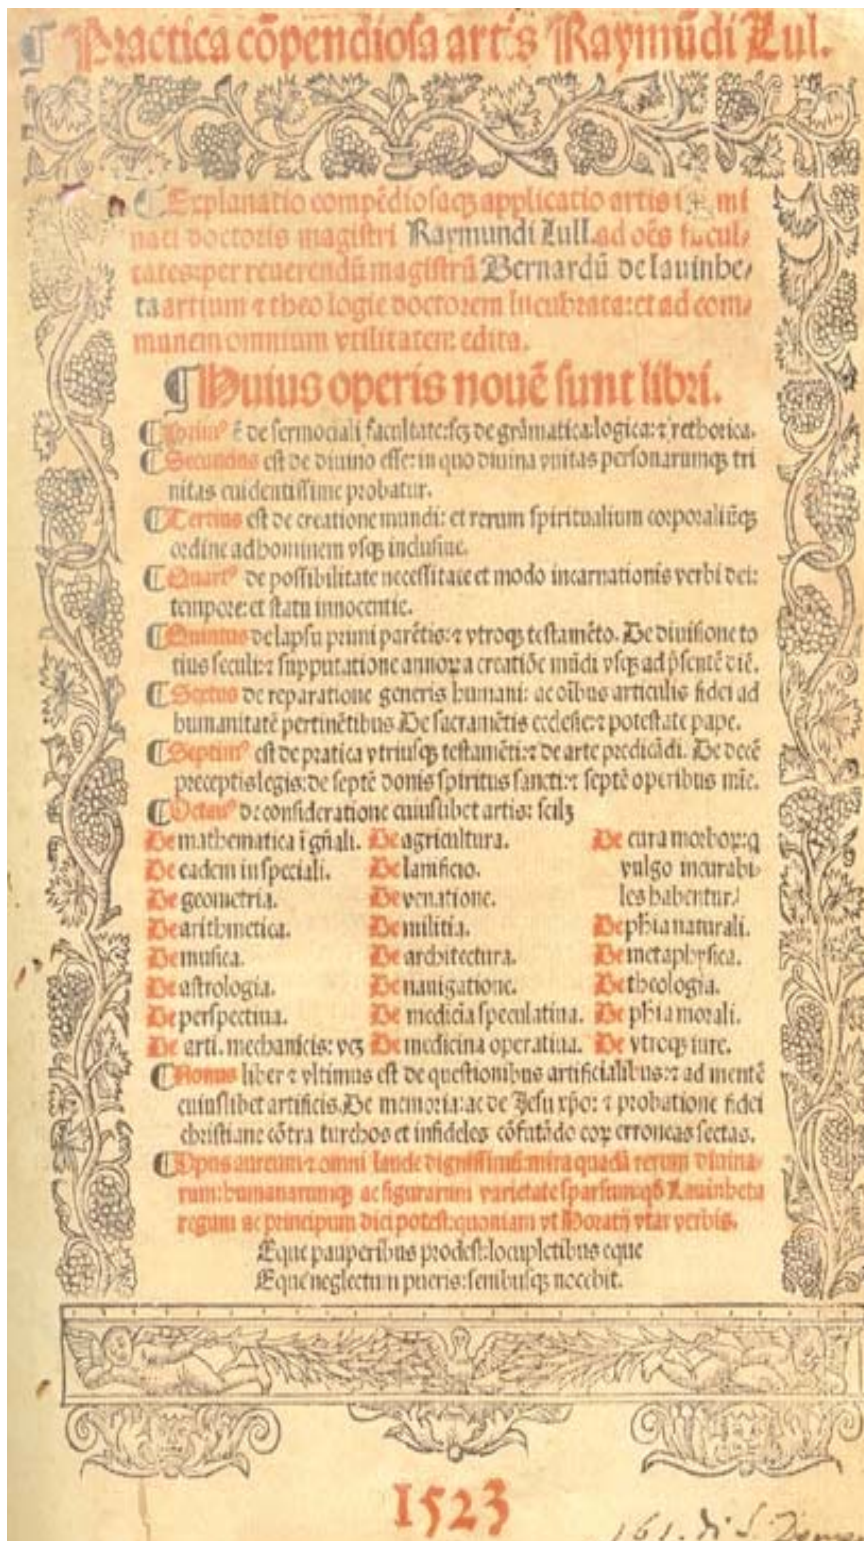 ¶ Practica cōpendiosa artis Raymūdi Lul.
¶ Explanatio compēdiosaqꝫ applicatio artis
nati doctoris magistri Raymundi Lull. ad oēs facul⸗
tates: per reuerendū magistrū Bernardū de lauinhe⸗
ta artium ⁊ theologie doctorem lucubrata: et ad com⸗
munem omnium vtilitatem edita.
¶ Huius operis nouē sunt libri.
¶ Primꝰ ē de sermociali facultate: scꝫ de grāmatica: logica: ⁊ rethorica.
¶ Secundus est de diuino esse: in quo diuina vnitas personarumqꝫ tri
nitas euidentissime probatur.
¶ Tertius est de creatione mundi: et rerum spiritualium corporaliūqꝫ
ordine ad hominem vsqꝫ inclusiue.
¶ Quartꝰ de possibilitate necessitate et modo incarnationis verbi dei:
tempore: et statu innocentie.
¶ Quintus de lapsu primi parētis: ⁊ vtroqꝫ testamēto. De diuisione to
tius seculi: ⁊ supputatione annoꝝ a creatiōe mūdi vsqꝫ ad p̄sentē diē.
¶ Sextus de reparatione generis humani: ac oībus articulis fidei ad
humanitatē pertinētibus. De sacramētis ecclesie: ⁊ potestate pape.
¶ Septimꝰ est de pratica vtriusqꝫ testamēti: ⁊ de arte predicādi. De decē
preceptis legis: de septē donis spiritus sancti: ⁊ septē operibus mīe.
¶ Octauꝰ de consideratione cuiuslibet artis: scilꝫ
De mathematica ī gn̄ali. De agricultura. De cura morboꝝ: q
De eadem in speciali. De lanificio. vulgo incurabi⸗
De geometria. De venatione. les habentur.
De arithmetica. De militia. De phīa naturali.
De musica. De architectura. De metaphysica.
De astrologia. De nauigatione. De theologia.
De perspectiua. De medicīa speculatiua. De phīa morali.
De arti. mechanicis: vꝫ De medicina operatiua. De vtroqꝫ iure.
¶ Nonus liber ⁊ vltimus est de questionibus artificialibus: ⁊ ad mentē
cuiuslibet artificis. De memoria: ac de Jesu xp̄o: ⁊ probatione fidei
christiane cōtra turchos et infideles cōfutādo eoꝝ erroneas sectas.
¶ Opus aureum ⁊ omni laude dignissimū: mira quadā rerum diuina⸗
rum: humanarumqꝫ ac figurarum varietate sparsum: qd̄ Lauinheta
regum ac principum dici potest: quoniam vt Horatij vtar verbis.
Eque pauperibus prodest: locupletibus eque
Eque neglectum pueris: senibusqꝫ nocebit.
1523
161. di S.